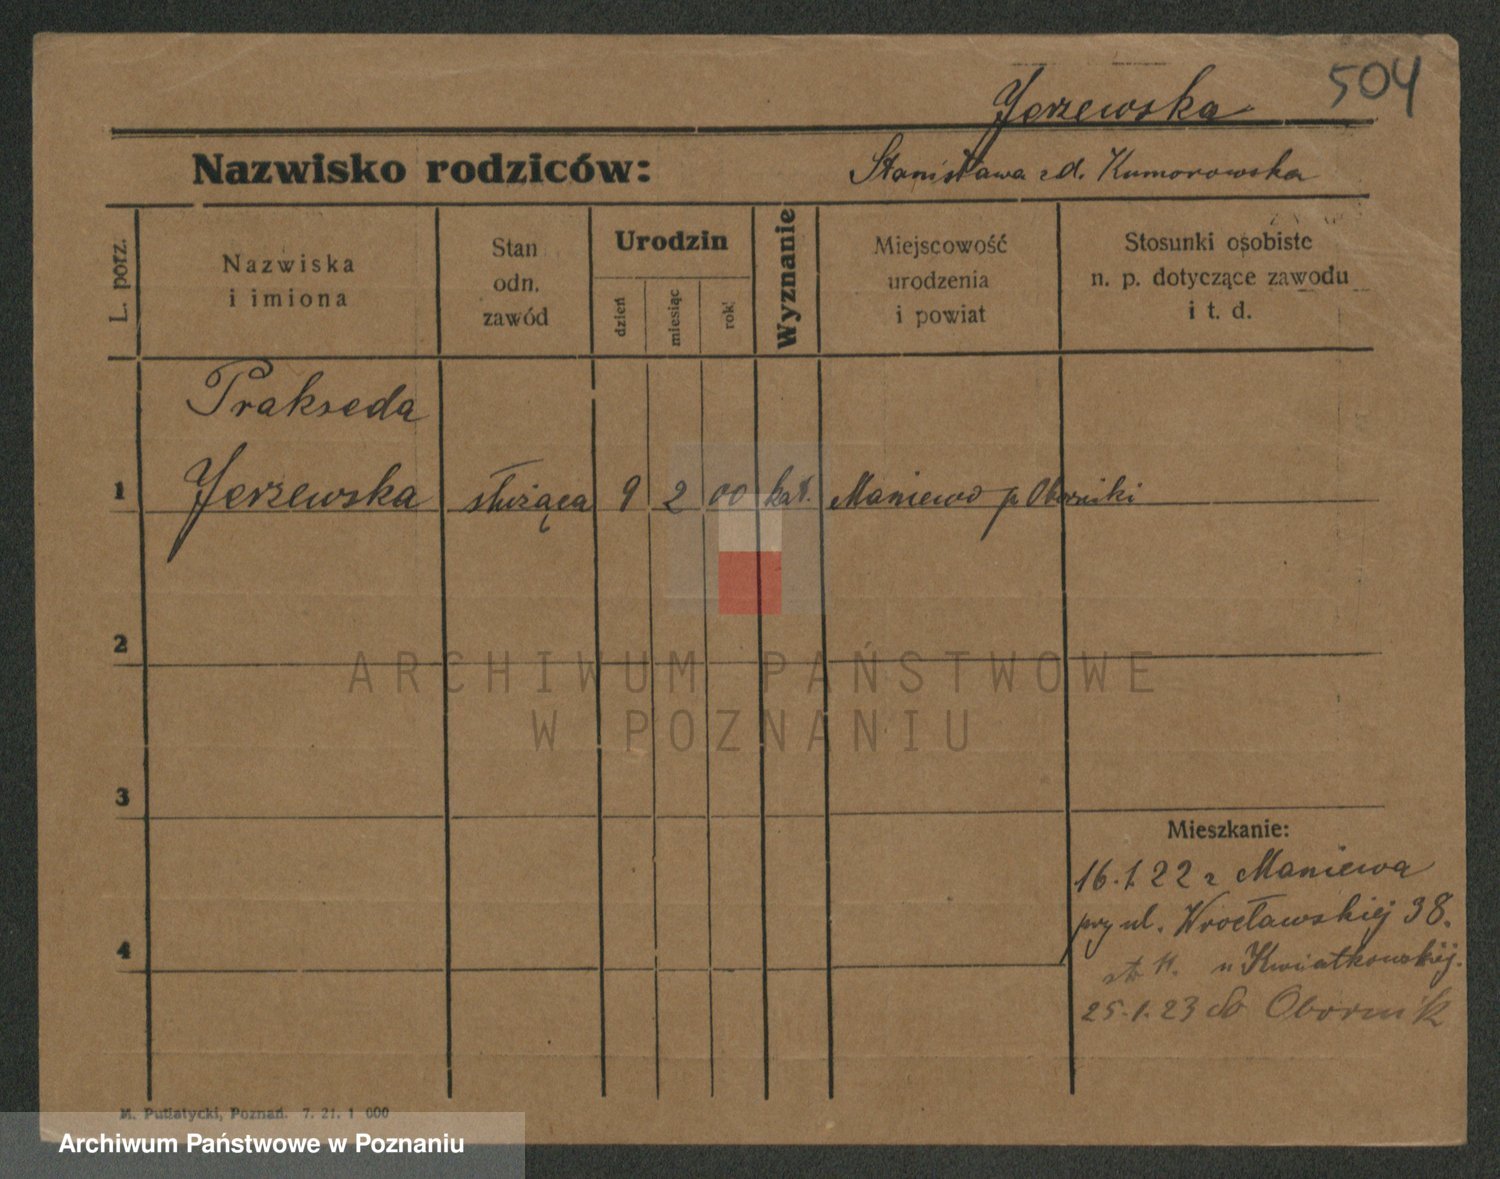 504
Jerzewska
Nazwisko rodziców: Stanisława zd. Kumorowska
L. porz. Nazwiska i imiona Stan odn. zawód Urodzin dzień miesiąc rok! Wyznanie Miejscowość urodzenia i powiat Stosunki osobiste n. p. dotyczące zawodu i t. d.
Prakseda
1 Jerzewska służąca 9 2 00 kat. Maniewo p. Oborniki
2
ARCHIWUM PAŃSTWOWE
W POZNANIU
3
Mieszkanie:
16.1.22 z Maniewa
przy ul. Wrocławskiej 38.
4
u Kwiatkowskiej.
25.1.23 do Obornik
M. Putiatycki, Poznań. 7. 21. 1 000
Archiwum Państwowe w Poznaniu